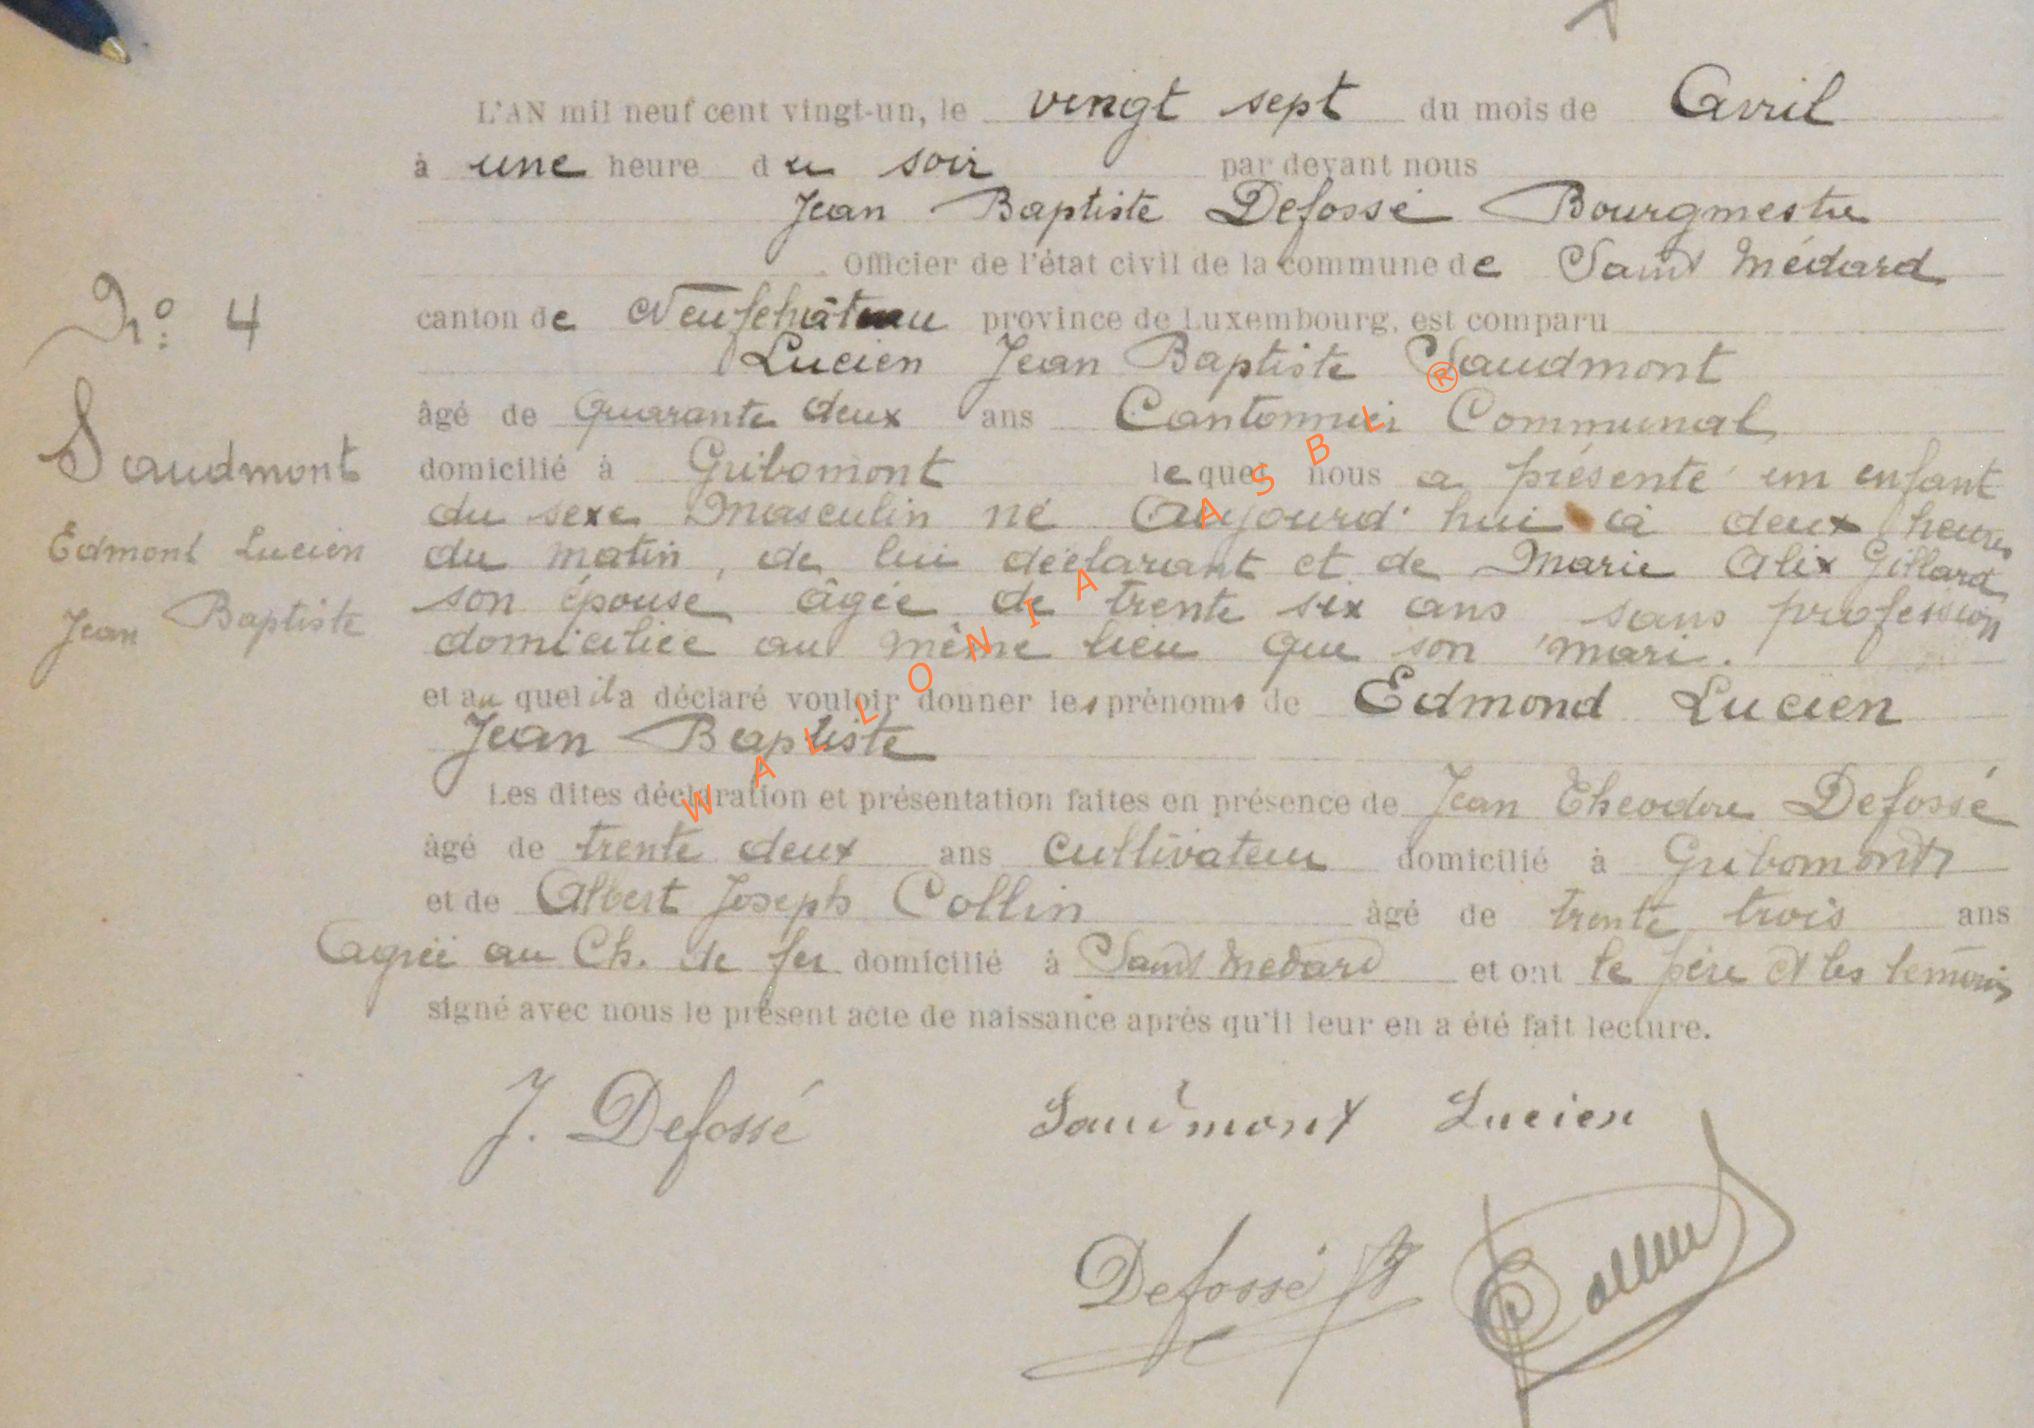 L'AN mil neuf cent vingt-un, le vingt sept du mois de Avril
à une heure du soir par devant nous
Jean Baptiste Defossé Bourgmestre
Officier de l'état civil de la commune de Saint Médard
N° 4
canton de Neufchâteau province de Luxembourg, est comparu
Lucien Jean Baptiste Saudmont
âgé de quarante deux ans Cantonnier Communal
Saudmont
domicilié à Gribomont lequel nous a présenté un enfant
du sexe Masculin né Aujourd'hui à deux heures
Edmont Lucien
du matin, de lui déclarant et de Marie Alix Gillard
Jean Baptiste
son épouse âgée de trente six ans sans profession
domiciliée au même lieu que son mari.
et auquel il a déclaré vouloir donner les prénoms de Edmond Lucien
Jean Baptiste
Les dites déclaration et présentation faites en présence de Jean Theodore Defossé
âgé de trente deux ans cultivateur domicilié à Gribomont
et de Albert Joseph Collin âgé de trente trois ans
agréé au Ch. de fer domicilié à Saint Medard et ont le père et les temoins
signé avec nous le présent acte de naissance après qu'il leur en a été fait lecture.
J. Defossé Saudmont Lucien
Defossé Collin
WALLONIA ASBL ®